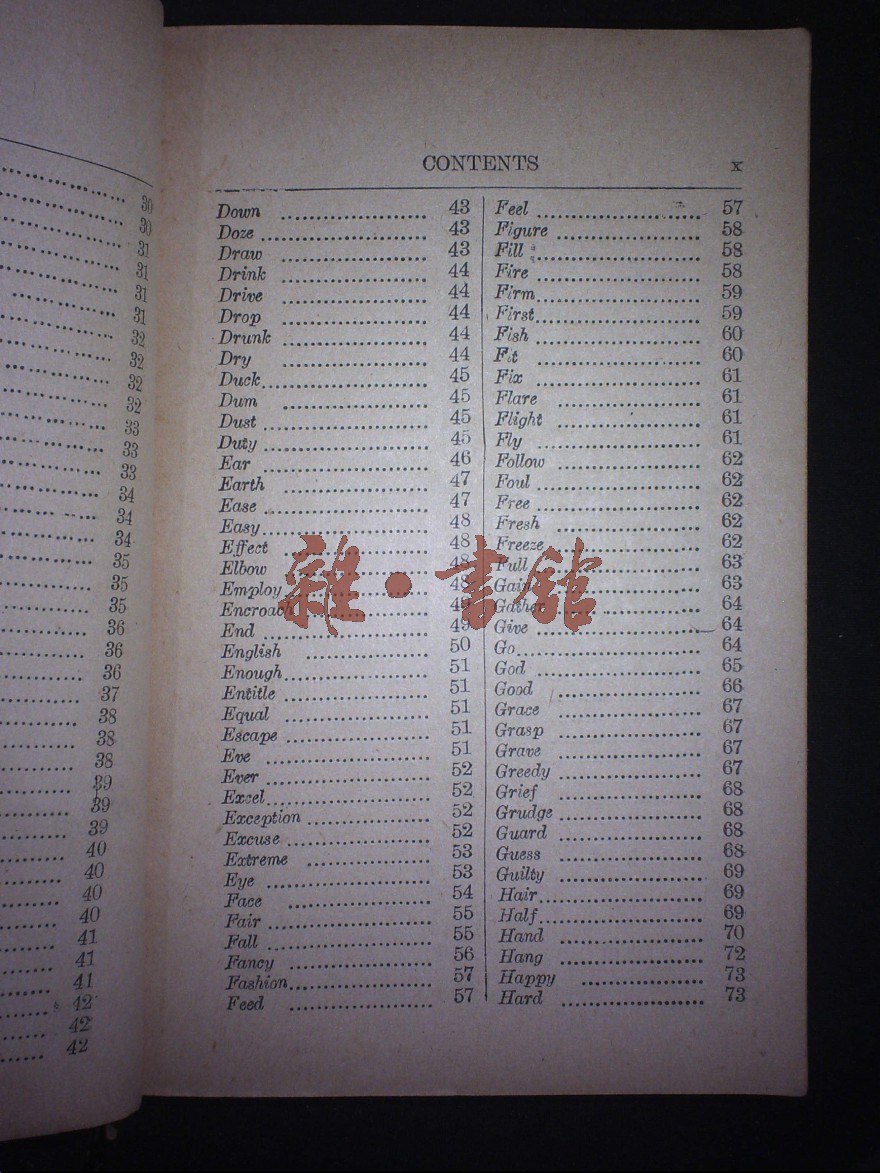 30
30
31
31
31
31
32
32
32
32
33
33
33
34
34
34
35
35
35
36
36
36
37
38
38
38
39
39
39
40
40
40
40
41
41
41
42
42
42
CONTENTS x
Down .................... 43
Doze .................... 43
Draw .................... 43
Drink .................... 44
Drive .................... 44
Drop .................... 44
Drunk .................... 44
Dry .................... 44
Duck .................... 45
Dum .................... 45
Dust .................... 45
Duty .................... 45
Ear .................... 46
Earth .................... 47
Ease .................... 47
Easy .................... 48
Effect .................... 48
Elbow .................... 48
Employ .................... 48
Encroach .................... 49
End .................... 49
English .................... 50
Enough .................... 51
Entitle .................... 51
Equal .................... 51
Escape .................... 51
Eve .................... 51
Ever .................... 52
Excel .................... 52
Exception .................... 52
Excuse .................... 52
Extreme .................... 53
Eye .................... 53
Face .................... 54
Fair .................... 55
Fall .................... 55
Fancy .................... 56
Fashion .................... 57
Feed .................... 57
Feel .................... 57
Figure .................... 58
Fill .................... 58
Fire .................... 58
Firm .................... 59
First .................... 59
Fish .................... 60
Fit .................... 60
Fix .................... 61
Flare .................... 61
Flight .................... 61
Fly .................... 61
Follow .................... 62
Foul .................... 62
Free .................... 62
Fresh .................... 62
Freeze .................... 62
Full .................... 63
Gain .................... 63
Gather .................... 64
Give .................... 64
Go .................... 64
God .................... 65
Good .................... 66
Grace .................... 67
Grasp .................... 67
Grave .................... 67
Greedy .................... 67
Grief .................... 68
Grudge .................... 68
Guard .................... 68
Guess .................... 68
Guilty .................... 69
Hair .................... 69
Half .................... 69
Hand .................... 70
Hang .................... 72
Happy .................... 73
Hard .................... 73
雜·書館